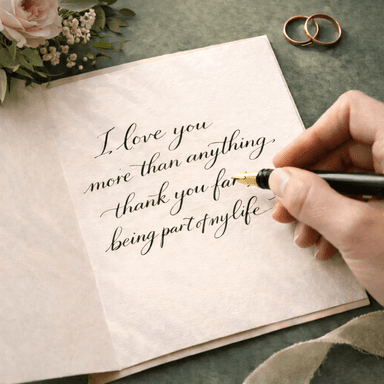 I love you
more than anything
thank you far
being part of my life